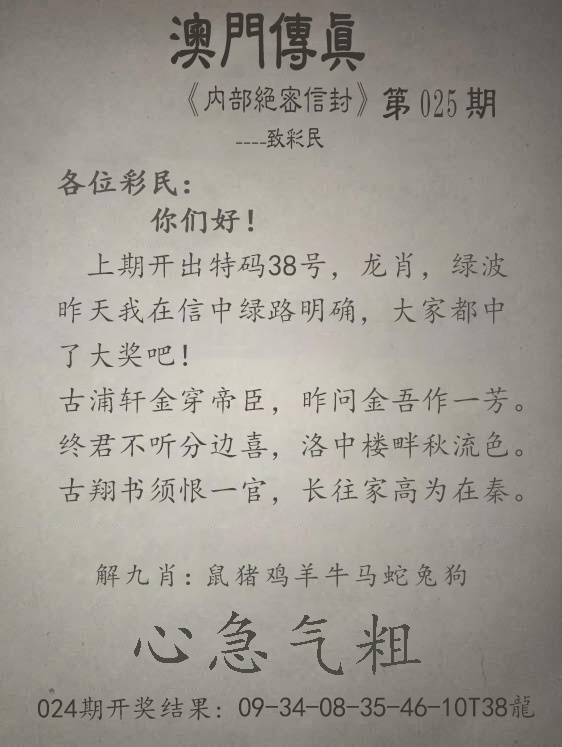 澳門傳眞
《内部絕密信封》第025期
----致彩民
各位彩民：
你们好！
上期开出特码38号，龙肖，绿波
昨天我在信中绿路明确，大家都中
了大奖吧！
古浦轩金穿帝臣，昨问金吾作一芳。
终君不听分边喜，洛中楼畔秋流色。
古翔书须恨一官，长往家高为在秦。
解九肖：鼠猪鸡羊牛马蛇兔狗
心急气粗
024期开奖结果：09-34-08-35-46-10T38龍